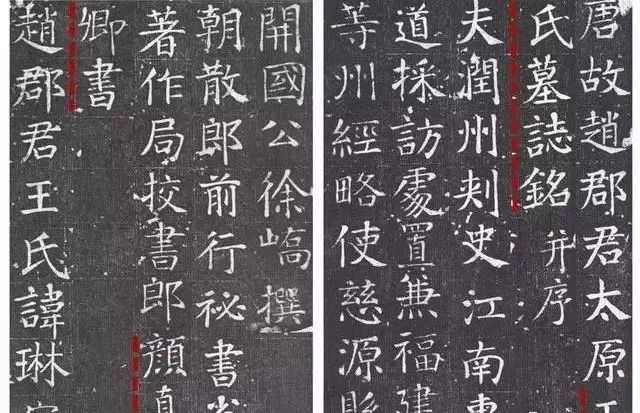 唐故趙郡君太原王
氏墓誌銘并序
夫潤州刾史江南東
道採訪處置兼福建
等州經略使慈源縣
開國公徐嶠撰
朝散郎前行祕書省
著作局挍書郎顏真
卿書
趙郡君王氏諱琳字